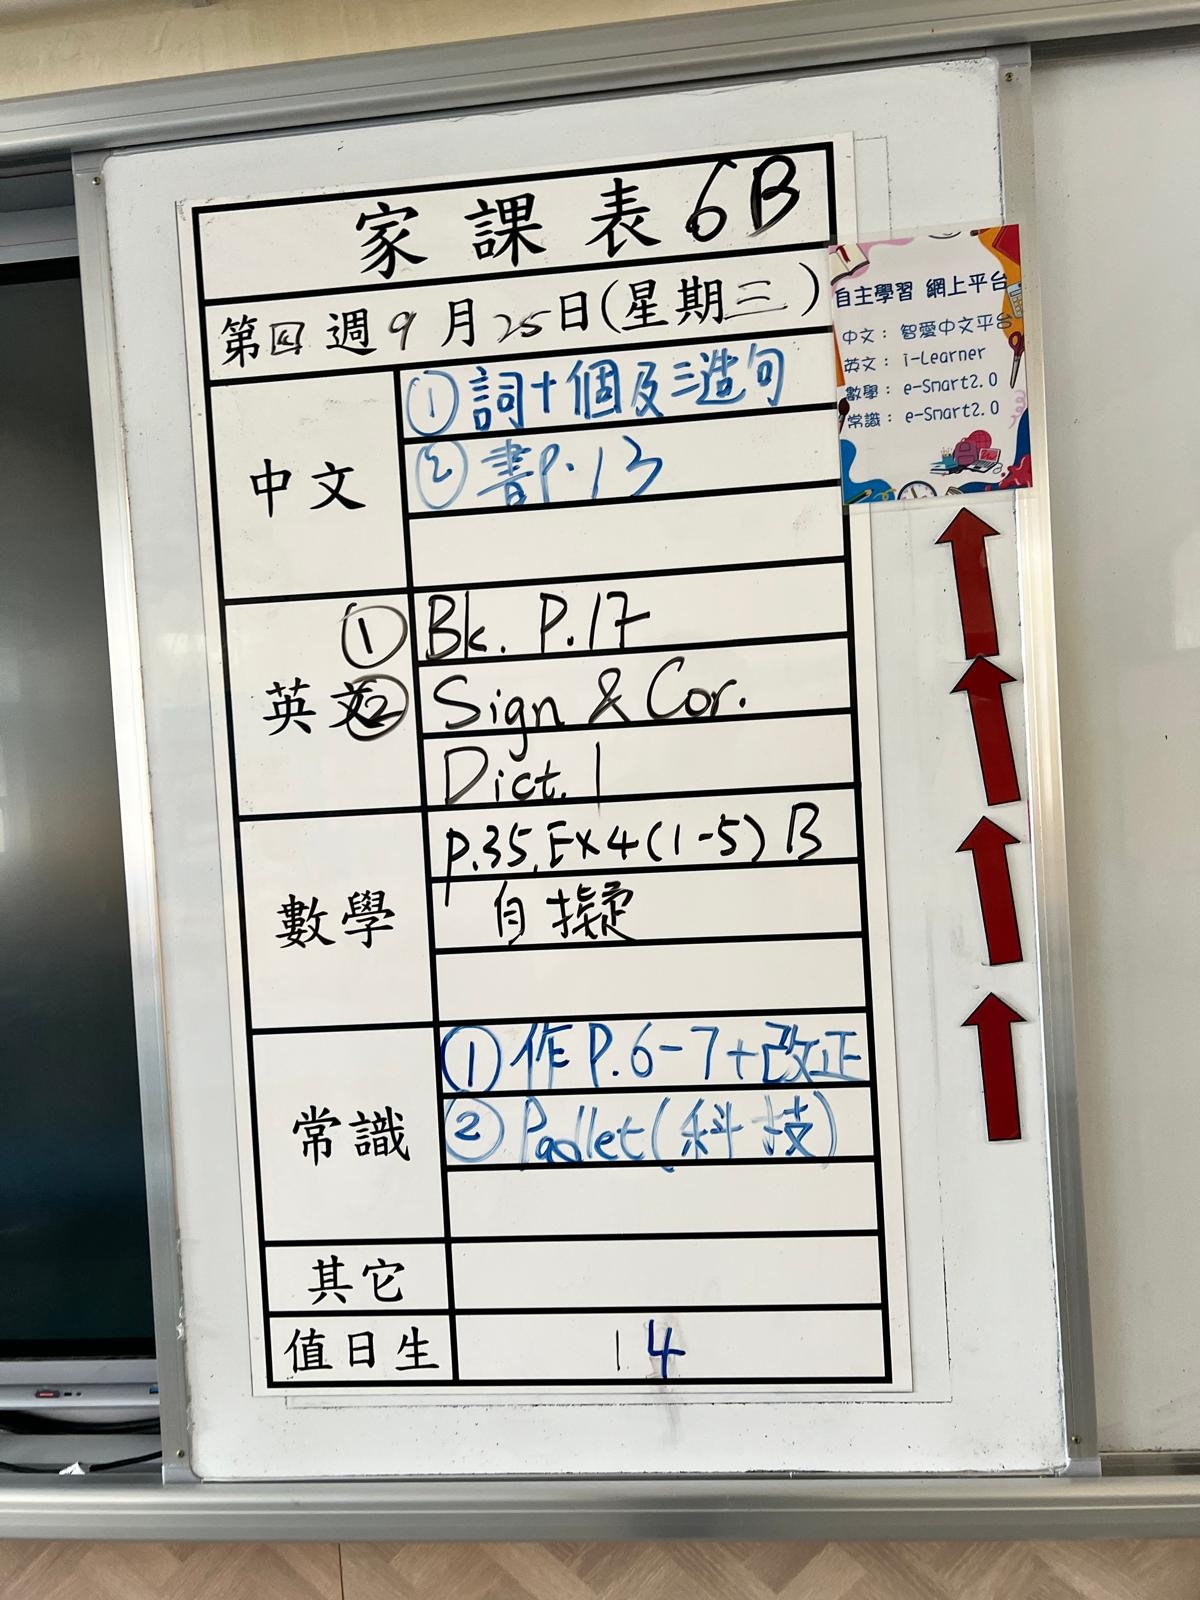 家課表 6B
第四週9月25日(星期三)
中文
① 詞十個及三造句
② 書P.13
英文
① Bk. P.17
② Sign & Cor.
Dict. 1
數學
P.35, Ex4(1-5) B
自擬
常識
① 作P.6-7+改正
② Padlet(科技)
其它
值日生
14
自主學習 網上平台
中文： 智愛中文平台
英文： i-Learner
數學： e-Smart2.0
常識： e-Smart2.0